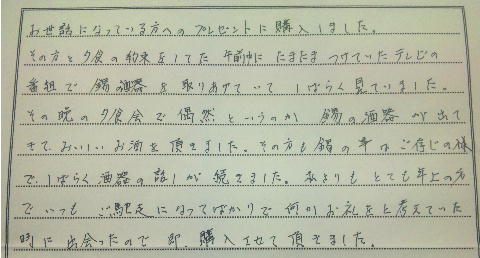 お世話になっている方へのプレゼントに購入しました。
その方と夕食の約束をしてた午前中にたまたまつけていたテレビの
番組で錫の酒器を取りあげていてしばらく見ていました。
その晩の夕食会で偶然というのか錫の酒器が出て
きて、おいしいお酒を頂きました。その方も錫の事はご存じの様
で、しばらく酒器の話しが続きました。私よりもとても年上の方
でいつもご馳走になってばかりで何かお礼をと考えていた
時に出会ったので即、購入させて頂きました。